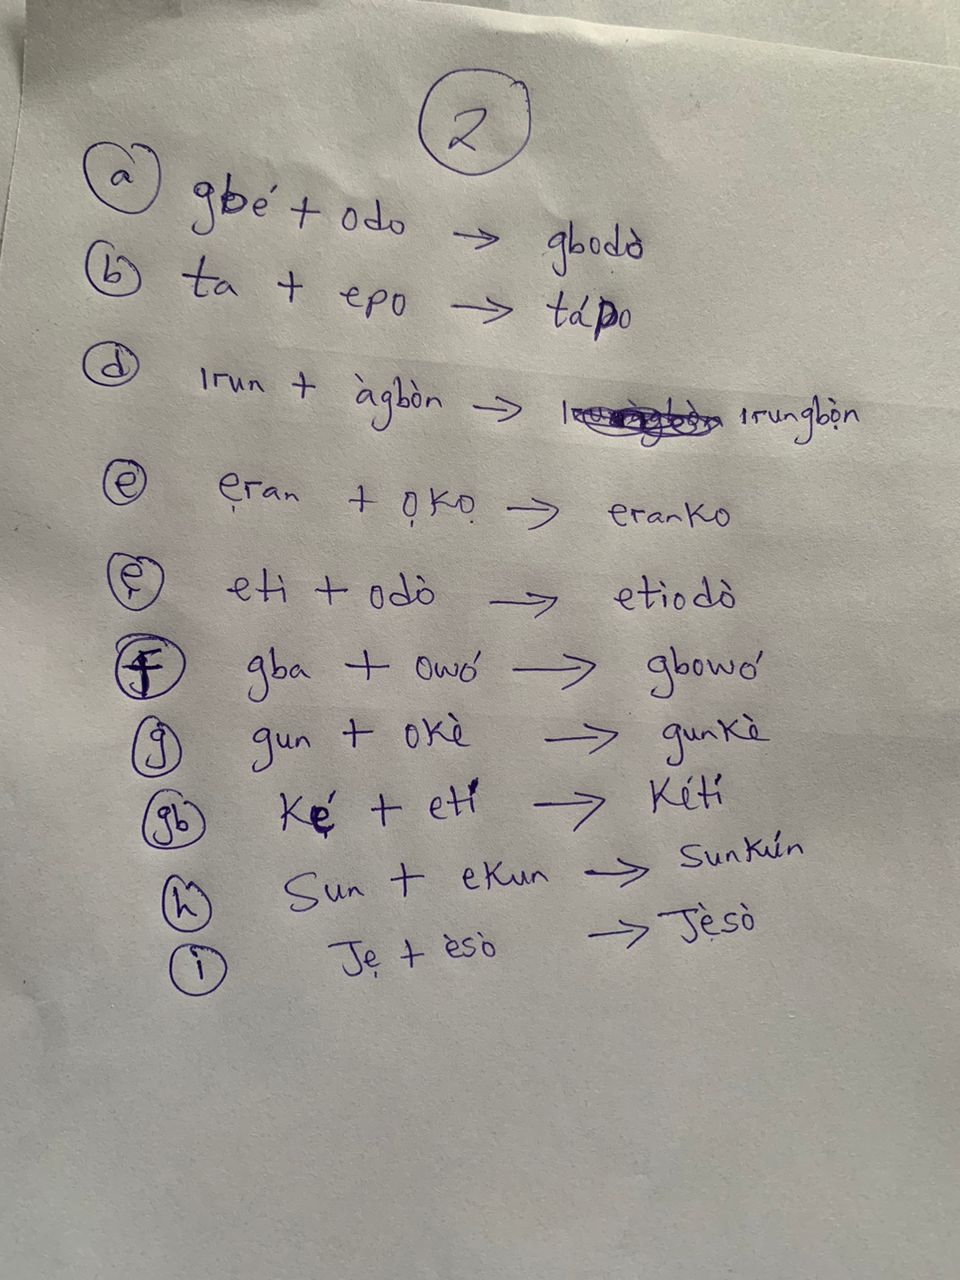 2
a gbé + odo → gbodò
b ta + epo → tápo
d irun + àgbòn → irungbọ̀n
e ẹran + ọkọ → eranko
ẹ eti + odò → etiodò
f gba + owó → gbowó
g gun + okè → gunkè
gb Kẹ́ + etí → Kétí
h Sun + ekun → Sunkún
i Jẹ + èsò → Jẹ̀sò